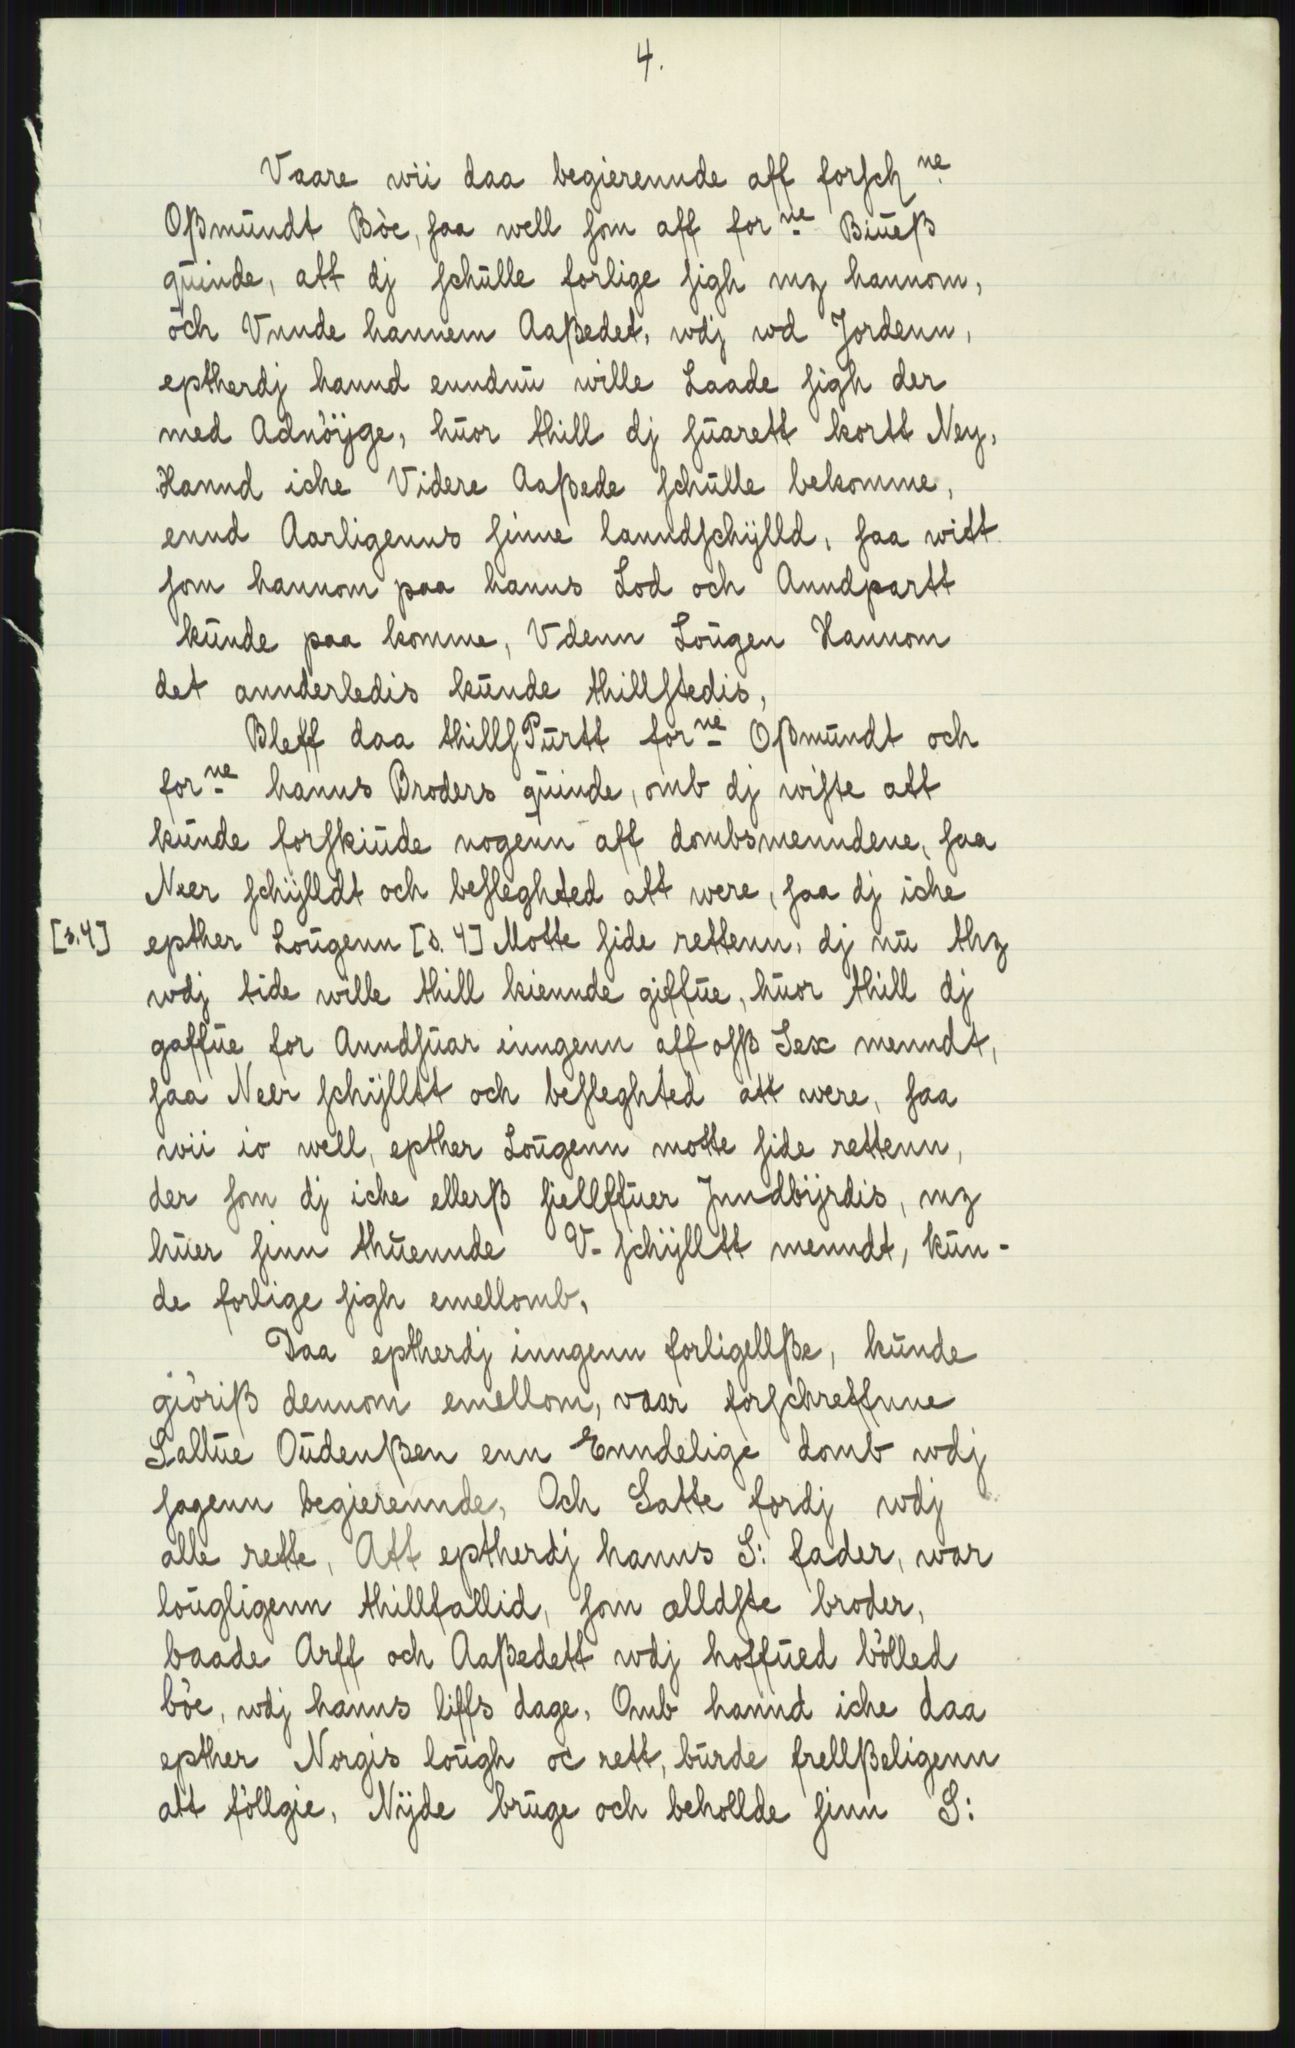 4.
Vaare wii daa begierennde aff forsch ne
Oßmundt Böe, saa well som aff for ne Biueß
quinde, att dj schulle forlige sigh mz hannom,
och Vnnde hannem Aaßedet, wdj wd Jordenn,
eptherdj hannd enndnu wille Laade sigh der
med Adnöÿge, huor thill dj suarett kortt Ney,
Hannd iche Videre Aaßede schulle bekomme,
ennd Aarligenns sinne lanndschÿlld, saa witt
som hannom paa hanns Lod och Anndpartt
kunde paa komme, Vdenn Lougen Hannom
det annderledis kunde thillstedis,
Bleff daa thillsPurtt for ne Oßmundt och
for ne hanns Broders quinde, omb dj wiste att
kunde forskiude nogenn aff dombsmenndene, saa
Neer schÿlldt och besleghted att were, saa dj iche
[s.4] epther Lougenn [s. 4] Motte side rettenn, dj nu thz
wdj tide wille thill kiennde giffue, huor thill dj
gaffue for Anndsuar inngenn aff osß Sex menndt,
saa Neer schÿlltt och besleghted att were, saa
wii io well, epther Lougenn motte side rettenn,
der som dj iche ellerß sielffuer Jnndbÿrdis, mz
huer sinn thuennde V-schÿlltt menndt, kun-
de forlige sigh emellomb,
Daa eptherdj inngenn forligellße, kunde
giöriß dennom emellom, vaar forschreffnne
Salltue Oudenßen enn Enndelige domb wdj
sagenn begierennde, Och Satte fordj wdj
alle rette, Att eptherdj hanns S: fader, war
lougligenn thillfallid, som ælldste broder,
baade Arff och Aaßedett wdj hoffued bölled
böe, wdj hanns liffs dage, Omb hannd iche daa
epther Norgis lough oc rett, burde frellßeligenn
att föllgie, Nÿde bruge och behollde sinn S: